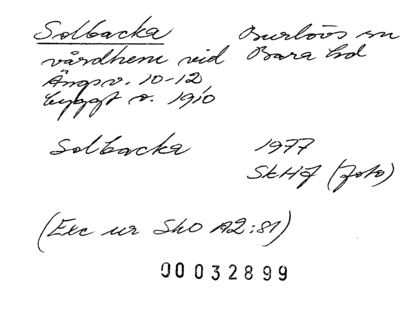 Solbacka Burlövs sn
vårdhem vid Bara hd
Ängsv. 10-12
byggt o. 1910
Solbacka 1977
SkHf (foto)
(Exc ur ShO A2:81)
00032899